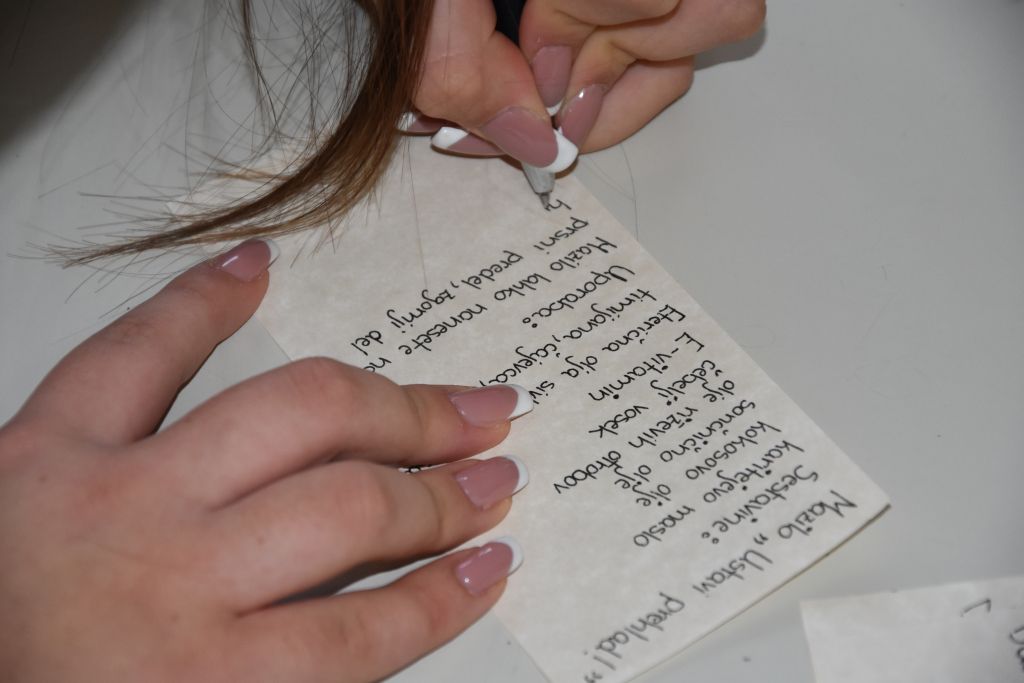 Mazilo „Ustavi prehlad!"
Sestavine:
karitejevo maslo
kokosovo olje
sončnično olje
olje riževih otrobov
čebelji vosek
E-vitamin
Eterična olja siv
timijana, čajevca,
Uporaba:
Mazilo lahko nanesete na
prsni predel, zgornji del
h